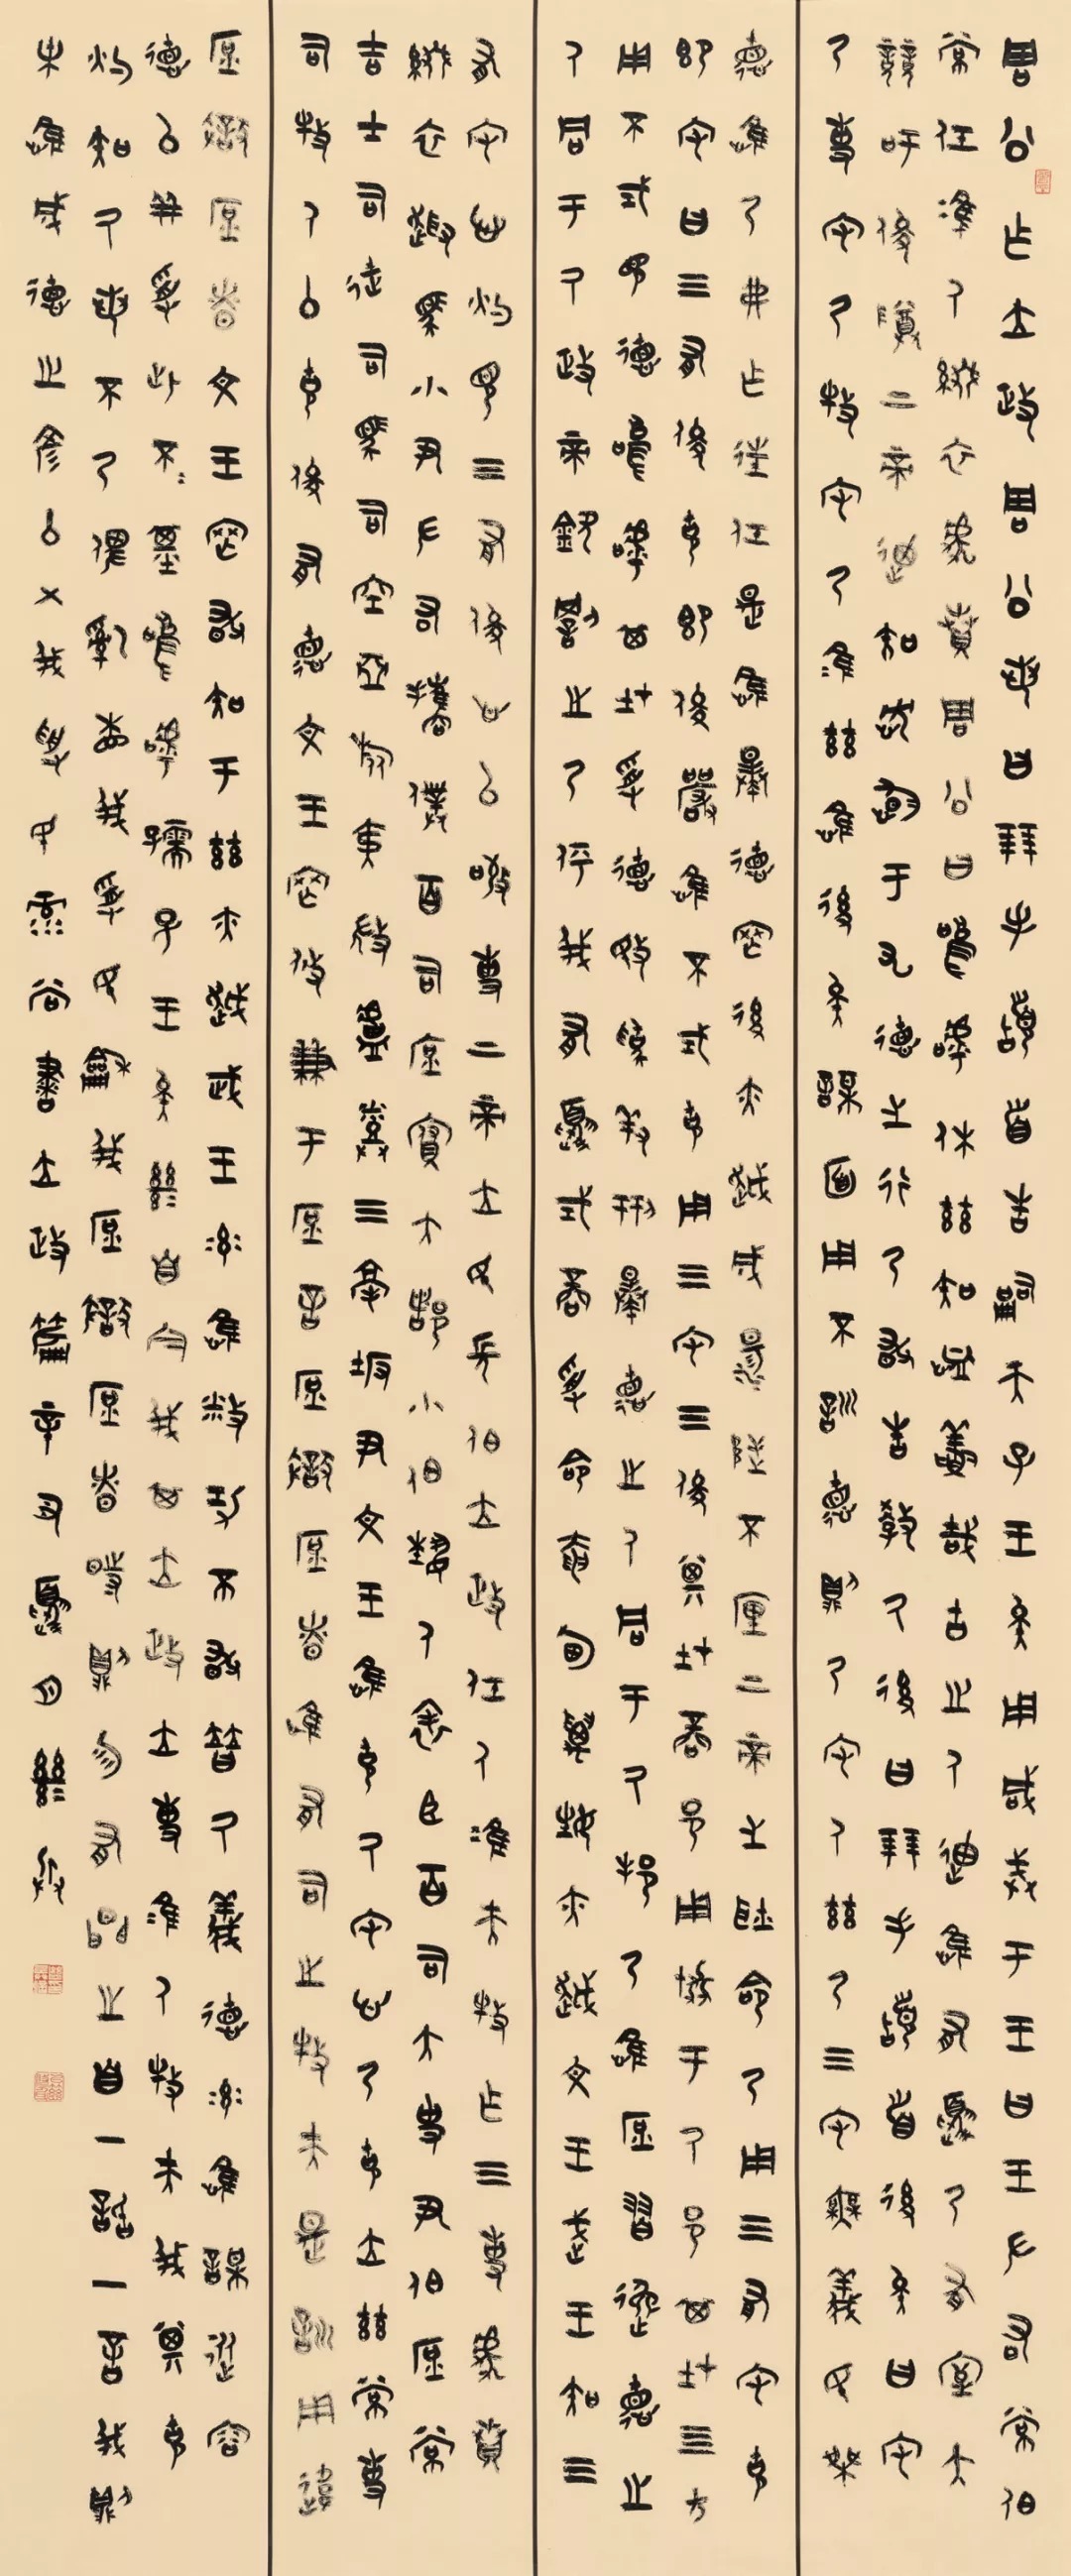 周公作立政周公若曰拜手稽首告嗣天子王矣用咸戒于王曰王左右常伯
常任準人綴衣虎賁周公曰嗚呼休茲知恤鮮哉古之人迪惟有夏乃有室大
競籲俊尊上帝迪知忱恂于九德之行乃敢告教厥后曰拜手稽首后矣曰宅
乃事宅乃牧宅乃準茲惟后矣謀面用丕訓德則乃宅人茲乃三宅無義民桀
德惟乃弗作往任是惟暴德罔後亦越成湯陟丕釐上帝之耿命乃用三有宅克
即宅曰三有俊克即俊嚴惟丕式克用三宅三俊其在商邑用協于厥邑其在四方
用丕式見德嗚呼其在受德暋惟羞刑暴德之人同于厥邦乃惟庶習逸德之
人同于厥政帝欽罰之乃伻我有夏式商受命奄甸萬姓亦越文王武王知三
有宅心灼見三有俊心以敬事上帝立民長伯立政任人準夫牧作三事虎賁
綴衣趣馬小尹左右攜僕百司庶府大都小伯藝人表臣百司太史尹伯庶常
吉士司徒司馬司空亞旅夷微盧烝三亳阪尹文王惟克厥宅心乃克立茲常事
司牧人以克俊有德文王罔攸兼于庶言庶獄庶慎惟有司之牧夫是訓用違
庶獄庶慎文王罔敢知于茲亦越武王率惟敉功不敢替厥義德率惟謀從容
德以並受此丕丕基嗚呼孺子王矣繼自今我其立政立事準人牧夫我其克
灼知厥若丕乃俾亂相我受民和我庶獄庶慎時則勿有間之自一話一言我則
末惟成德之彥以乂我受民尚書立政篇辛丑夏月